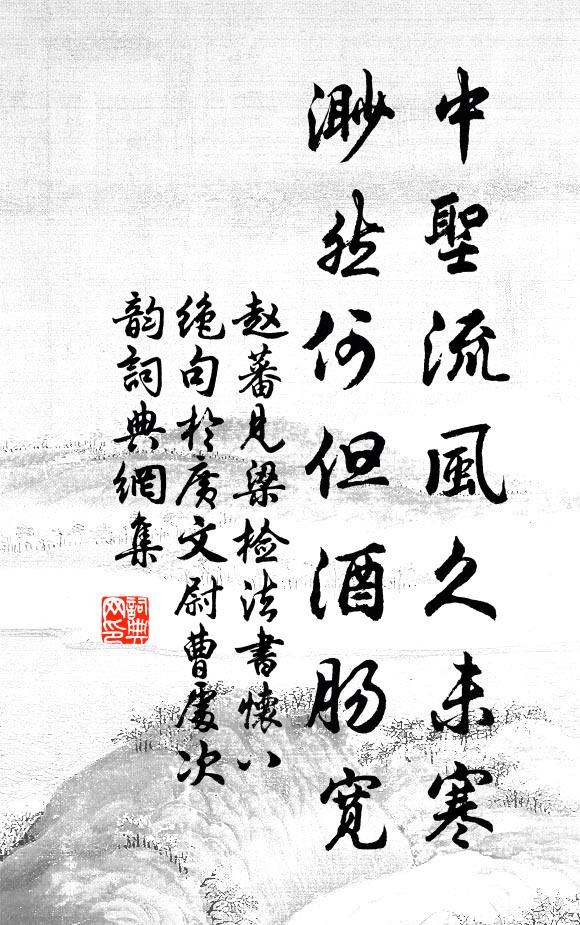 中聖流風久未寒
渺然何但酒肠寬
赵蕃見梁檢法書懷八
绝句於廣文尉曹處次
韵詞典網集
詞典
网印